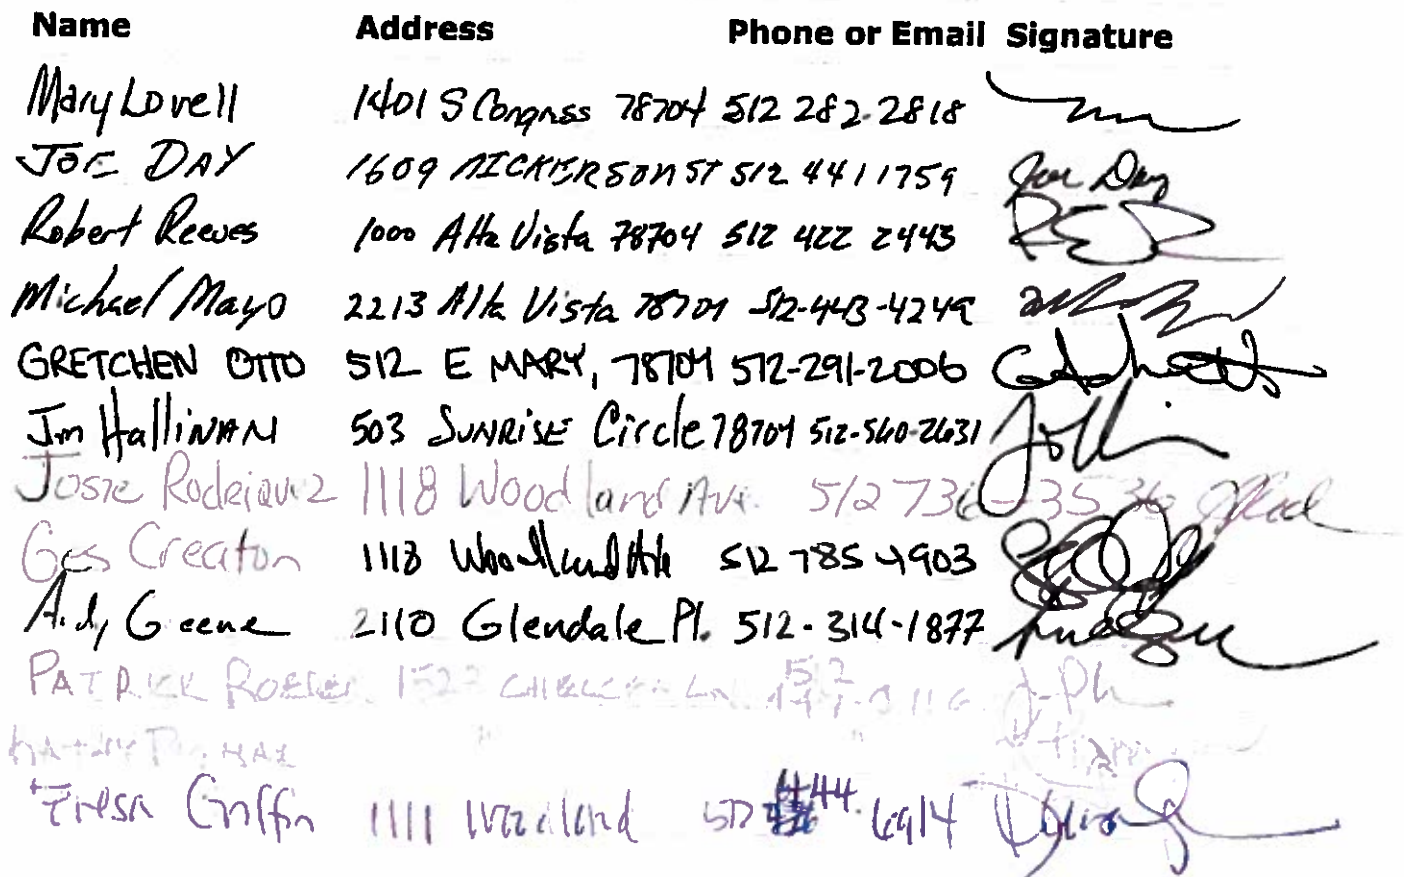 Name Address Phone or Email Signature
Mary Lovell 1401 S Congress 78704 512 282-2818
JOE DAY 1609 NICKERSON ST 512 441 1759 Joe Day
Robert Reeves 1000 Alta Vista 78704 512 422 2443
Michael Mayo 2213 Alta Vista 78704 512-443-4249
GRETCHEN OTTO 512 E MARY, 78704 512-291-2006
Jim HalliNAN 503 SUNRiSE Circle 78704 512-560-2631
Josie Rodriquez 1118 Woodland Ave. 512 736-3536
Ges Creaton 1118 Woodland Ave 512 785 4903
Andy Greene 2110 Glendale Pl. 512-314-1877
PATRICK LN. 512
KATHY
Teresa Griffin 1111 Woodland 512 444-6914